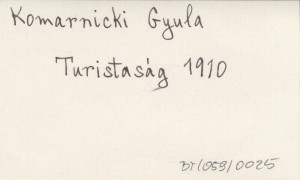 Komarnicki Gyula
Turistaság 1910
BT/059/0025